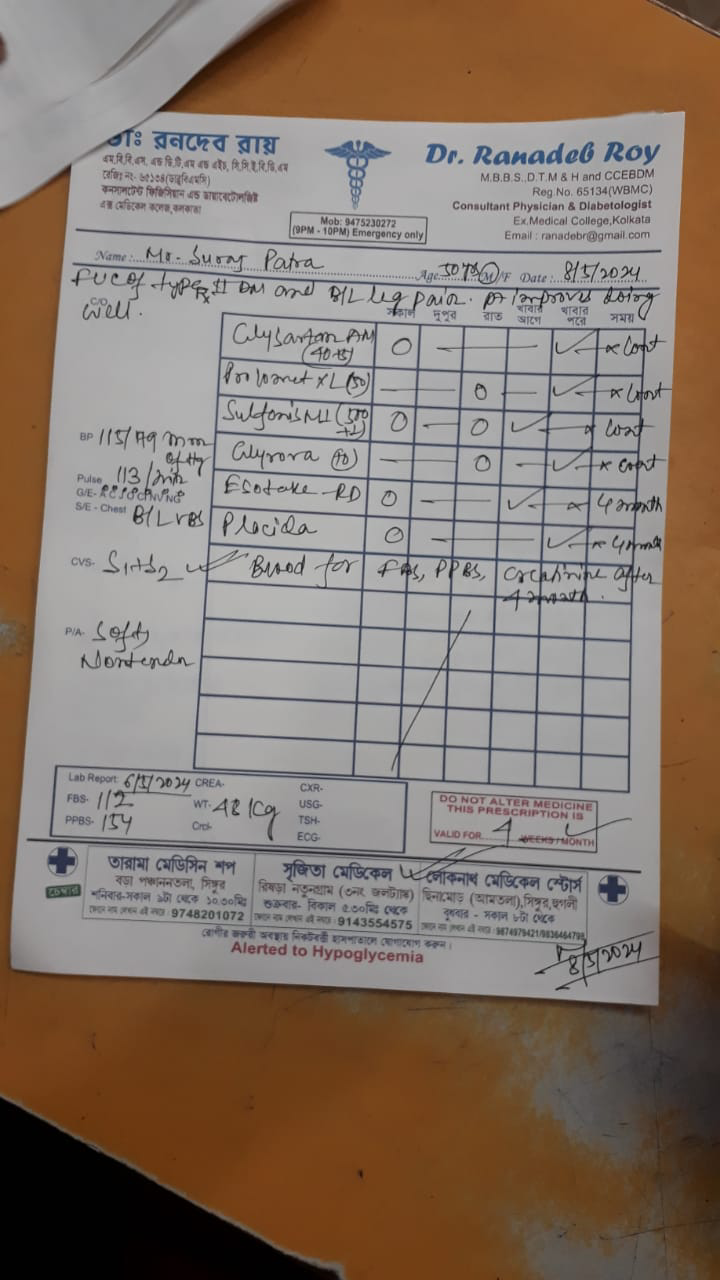 ডাঃ রনদেব রায়
এম.বি.বি.এস, এন্ড ডি.টি.এম এন্ড এইচ, সি.সি.ই.বি.ডি.এম
রেজিঃ নং- ৬৫১৩৪(ডাব্লুবিএমসি)
কনসালটেন্ট ফিজিসিয়ান এন্ড ডায়াবেটোলজিষ্ট
এক্স মেডিকেল কলেজ,কলকাতা
Mob: 9475230272
(9PM - 10PM) Emergency only
Dr. Ranadeb Roy
M.B.B.S.,D.T.M & H and CCEBDM
Reg.No. 65134(WBMC)
Consultant Physician & Diabetologist
Ex.Medical College,Kolkata
Email : ranadebr@gmail.com
Name : Mr. Suraj Patra Age M/F Date : 8/5/2024
type II DM and B/L leg pain. improves doing
C/O well.
Rx
সকাল দুপুর রাত খাবার আগে খাবার পরে সময়
AM O - - - ✓ x cont
(40+5)
XL (50) - - O - ✓ x cont
(500 O - O ✓ x cont
(10) - - O - ✓ x cont
RD O - - ✓ x 4 month
Placida O ✓ x 4 month
Blood for FBS, PPBS, creatinine after
4 month.
BP 115/79 mm of Hg
Pulse 113/min
G/E-
S/E - Chest B/L VBS
CVS- S1+S2
P/A- Soft,
Nontender
Lab Report: 6/5/2024 CREA- CXR-
FBS- 112 WT- 48 kg USG-
PPBS- 154 Crcl- TSH-
ECG-
DO NOT ALTER MEDICINE
THIS PRESCRIPTION IS
VALID FOR 4 WEEKS / MONTH
চেম্বার
তারামা মেডিসিন শপ
বড়া পঞ্চাননতলা, সিঙ্গুর
শনিবার-সকাল ৯টা থেকে ১০.৩০মিঃ
ফোনে নাম লেখান এই নম্বরে : 9748201072
সুজিতা মেডিকেল
রিষড়া নতুনগ্রাম (৩নং জলট্যাঙ্ক)
শুক্রবার- বিকাল ৫.৩০মিঃ থেকে
ফোনে নাম লেখান এই নম্বরে : 9143554575
লোকনাথ মেডিকেল স্টোর্স
ছিনামোড় (আমতলা),সিঙ্গুর,হুগলী
বুধবার - সকাল ৮টা থেকে
ফোনে নাম লেখান এই নম্বরে : 9874979421/9836464798
রোগীর জরুরী অবস্থায় নিকটবর্তী হাসপাতালে যোগাযোগ করুন।
Alerted to Hypoglycemia
8/5/2024